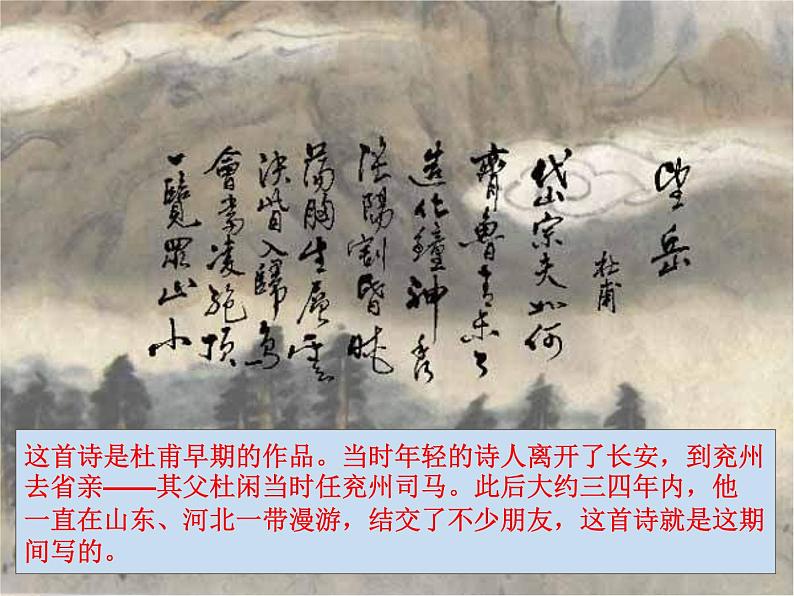 望岳
杜甫
岱宗夫如何
齊魯青未了
造化鐘神秀
陰陽割昏曉
荡胸生層雲
決眥入歸鳥
會當凌絕頂
一覽眾山小
这首诗是杜甫早期的作品。当时年轻的诗人离开了长安，到兖州
去省亲——其父杜闲当时任兖州司马。此后大约三四年内，他
一直在山东、河北一带漫游，结交了不少朋友，这首诗就是这期
间写的。